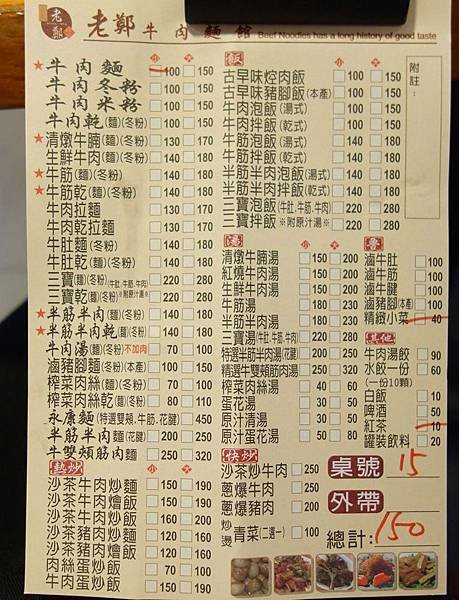 老鄭
老鄭牛肉麵館
Beef Noodles has a long history of good taste
小 大
★牛肉麵 100 150
牛肉冬粉 100 150
牛肉米粉 100 150
牛肉乾(麵)(冬粉) 100 150
★清燉牛腩(麵)(冬粉) 130 170
生鮮牛肉(麵)(冬粉) 140 180
★牛筋(麵)(冬粉) 140 180
★牛筋乾(麵)(冬粉) 140 180
牛肉拉麵 130 170
牛肉乾拉麵 130 170
牛肚麵(冬粉) 140 180
牛肚乾(麵)(冬粉) 140 180
三寶(麵)(冬粉)(牛肚.牛筋.牛肉) 220 280
三寶乾(麵)(冬粉)※附原汁湯※ 220 280
★半筋半肉(麵)(冬粉) 140 180
★半筋半肉乾(麵)(冬粉) 140 180
牛肉湯(麵)(冬粉)不加肉 70 100
滷豬腳麵(冬粉)(本產) 100 150
榨菜肉絲(麵)(冬粉) 70 100
榨菜肉絲乾(麵)(冬粉) 80 110
永康麵(特選雙頰.牛筋.花腱) 450
半筋半肉麵(花腱) 200 250
牛雙頰筋肉麵 250 320
熱炒 小 大
沙茶牛肉炒麵 150 190
沙茶牛肉燴飯 150 190
沙茶牛肉炒飯 160 200
沙茶豬肉炒麵 120 160
沙茶豬肉燴飯 120 160
肉絲蛋炒飯 70 100
牛肉蛋炒飯 150 190
飯 小 大
古早味焢肉飯 100 150
古早味豬腳飯(本產) 100 150
牛肉泡飯(湯式) 100 150
牛肉拌飯(乾式) 100 150
牛筋泡飯(湯式) 140 180
牛筋拌飯(乾式) 140 180
半筋半肉泡飯(湯式) 140 180
半筋半肉拌飯(乾式) 140 180
三寶泡飯(牛肚.牛筋.牛肉) 220 280
三寶拌飯※附原汁湯※ 220 280
附註:
湯 小 大
清燉牛腩湯 150 200
紅燒牛肉湯 150 200
生鮮牛肉湯 150 200
牛筋湯 180 230
半筋半肉湯 180 230
三寶湯(牛肚.牛筋.牛肉) 220 280
特選半筋半肉湯(花腱) 200 250
精選牛雙頰筋肉湯 250 320
榨菜肉絲湯 40 60
蛋花湯 30 50
原汁清湯 30 50
原汁蛋花湯 50 80
滷牛肚 100
滷牛筋 100
滷牛腱 100
滷豬腳(本產) 100
精緻小菜 40
其他
牛肉湯餃 90
水餃一份 60
(一份10顆)
白飯 10
啤酒 50
紅茶 10
罐裝飲料 20
快炒
沙茶炒牛肉 250
蔥爆牛肉 250
蔥爆豬肉 200
炒燙 青菜(二選一) 100
桌號 15
外帶
總計: 150